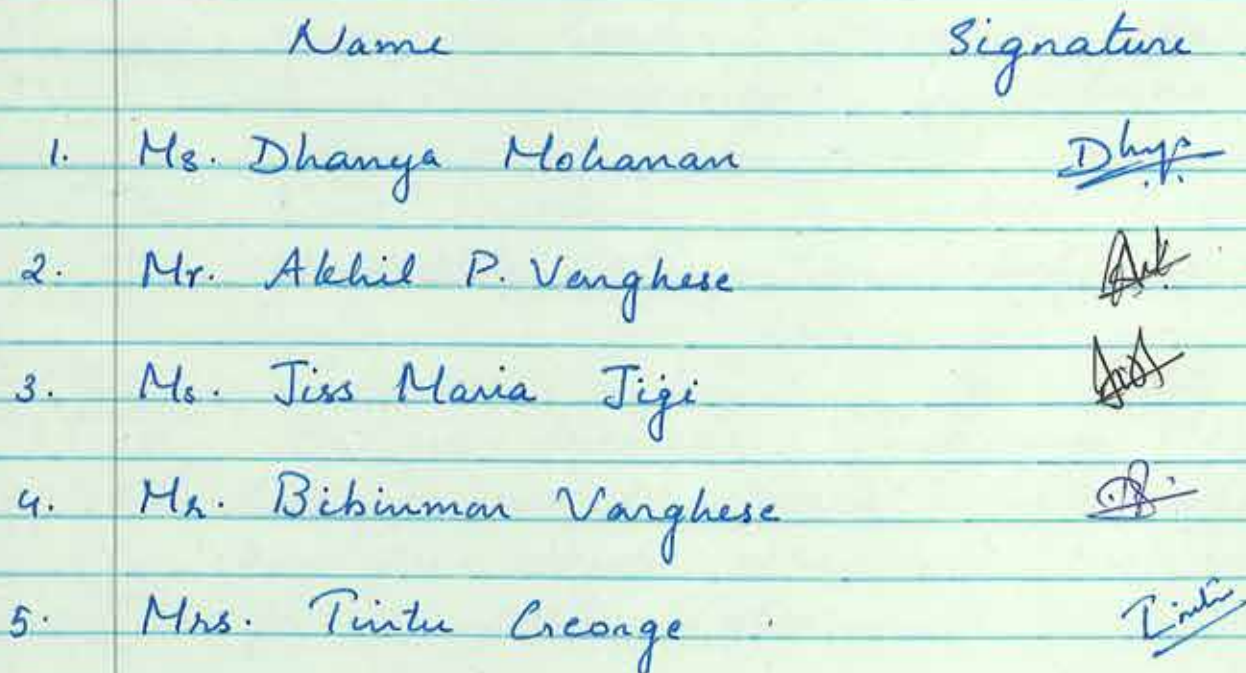 Name Signature
1. Ms. Dhanya Mohanan
2. Mr. Akhil P. Varghese
3. Ms. Jiss Maria Jigi
4. Mr. Bibinmon Varghese
5. Mrs. Tintu George Tintu